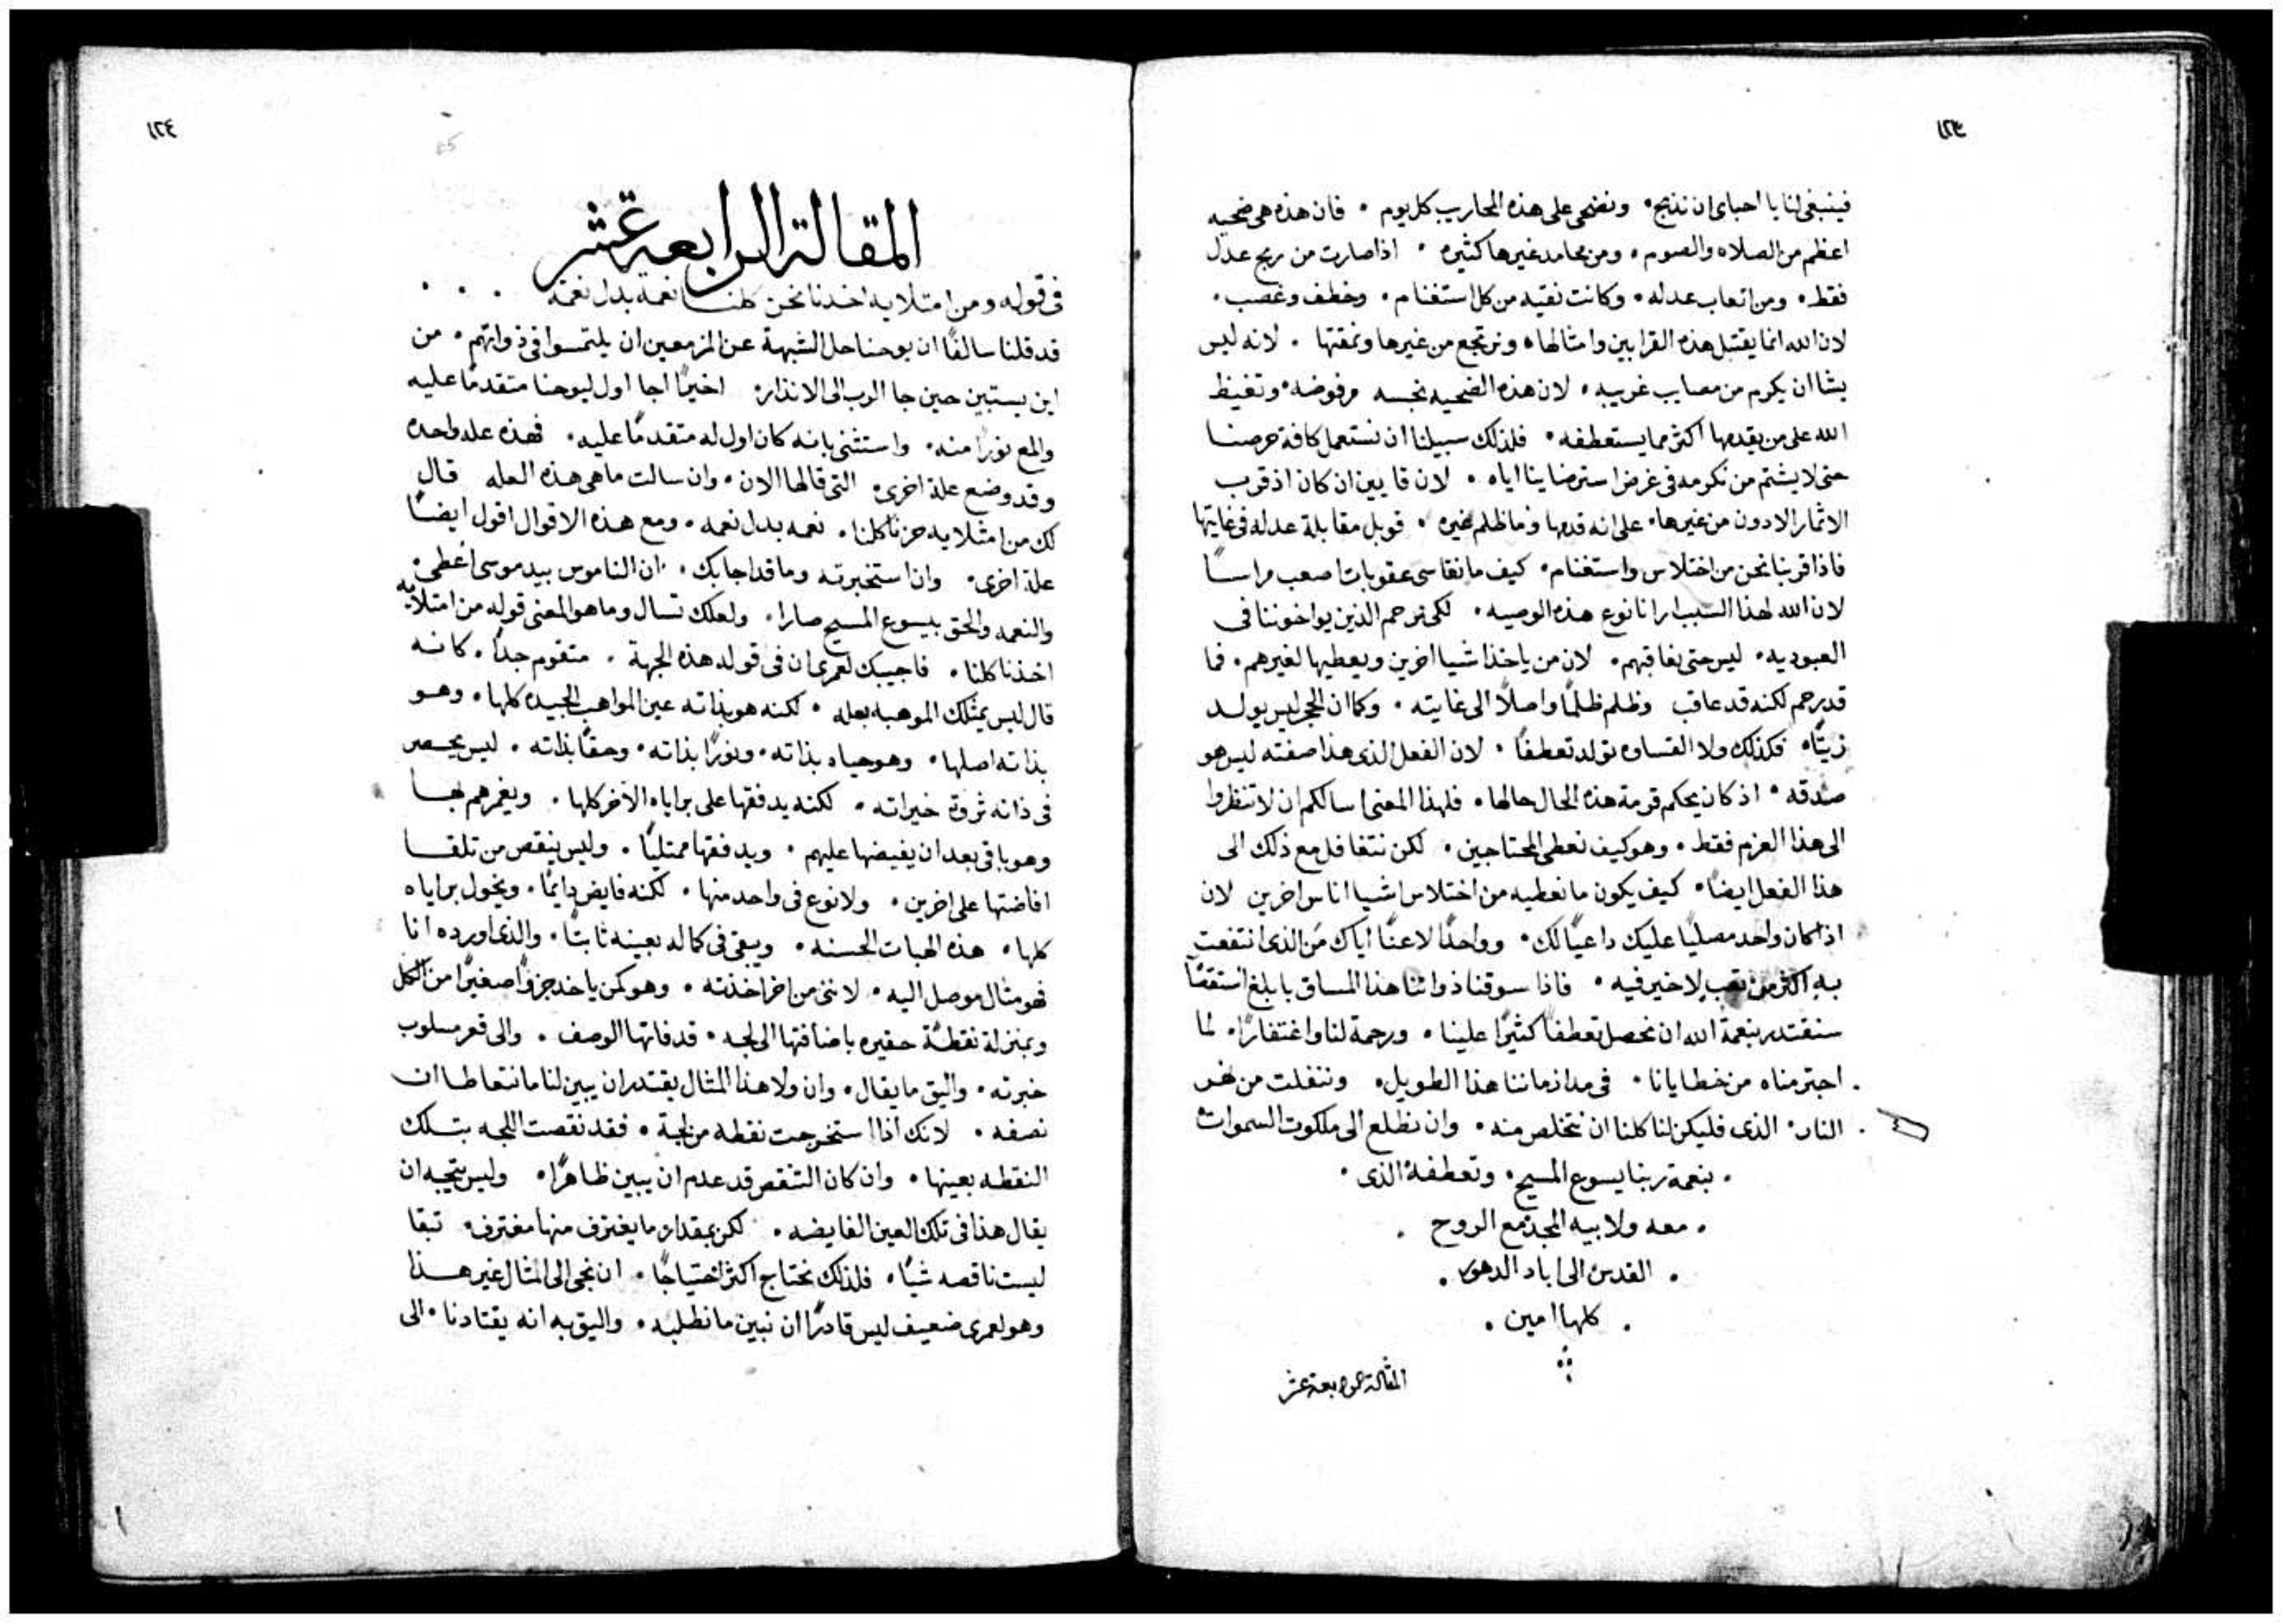 ١٢٣
فينبغي لنا يا احباى ان نذبح • ونضحى على هذه المحاريب كل يوم • فان هذه هى ضحيه
اعظم من الصلاه والصوم • ومن محامد غيرها كثيره • اذا صارت من ربح عدل
فقط • ومن اتعاب عدله • وكانت نقيه من كل استغنام • وخطف وغصب •
لان الله انما يقتبل هذه القرابين وامثالها • ونرتجع من غيرها ونمقتها • لانه ليس
يشا ان يكرم من مصايب غريبه • لان هذه الضحيه نجسه مرفوضه • وتغيظ
الله على من يقدمها اكثر مما يستعطفه • فلذلك سبيلنا ان نستعمل كافة حرصنا
حتى لا يشتم من نكرمه فى غرض استرضاينا اياه • لان قايين ان كان اذ قرب
الاثمار الادون من غيرها • على انه قدمها وما ظلم غيره • قوبل مقابلة عدله فى غايتها
فاذا قربنا نحن من اختلاس واستغنام • كيف ما نقاسى عقوبات اصعب مراسًا
لان الله لهذا السبب ارانا نوع هذه الوصيه • لكى نرحم الذين يواخوننا فى
العبوديه • ليس حتى نعاقبهم • لان من ياخذ اشيا اخرين ويعطيها لغيرهم • فما
قد رحم لكنه قد عاقب وظلم ظلمًا واصلاً الى غايته • وكما ان الحجر ليس يولد
زيتًا • فكذلك ولا القساوه تولد تعطفًا • لان الفعل الذى هذا صفته ليس هو
صدقه • اذ كان بحكم قرمة هذه الحال حالها • فلهذا المعنى اسالكم ان لا تنظروا
الى هذا العزم فقط • وهو كيف نعطى المحتاجين • لكن نتغافل مع ذلك الى
هذا الفعل ايضًا • كيف يكون ما نعطيه من اختلاس اشيا اناس اخرين لان
اذا كان واحد مصليًا عليك داعيًا لك • وواحدًا لاعنًا اياك من الذى انتفعت
به اكثر من تعب لا خير فيه • فاذا سوقنا ذواتنا هذا المساق بابلغ استقصًا
سنقتدر بنعمة الله ان نحصل تعطفًا كثيرًا علينا • ورحمة لنا واغتفارًا • لما
اجترمناه من خطايانا • فى مدا زماننا هذا الطويل • وننفلت من نهر
النار • الذى فليكن لنا كلنا ان نتخلص منه • وان نطلع الى ملكوت السموات
• بنعمة ربنا يسوع المسيح • وتعطفه الذى •
• معه ولابيه المجد مع الروح •
• القدس الى اباد الدهور •
• كلها امين •
المقالة الرابعة عشر
١٢٤
المقالة الرابعة عشر
فى قوله ومن امتلايه اخذنا نحن كلنا نعمه بدل نعمة • • •
قد قلنا سالفًا ان يوحنا حل الشبهة عن المزمعين ان يلتمسوا فى ذواتهم • من
اين يستبين حين جا الرب الى الانذار • اخيرًا اجا اول ليوحنا متقدمًا عليه
والمع نورًا منه • واستثنى بانه كان اول له متقدمًا عليه • فهذه عله واحده
وقد وضع علة اخرى • التى قالها الان • وان سالت ما هى هذه العله قال
لك من امتلايه حزنا كلنا • نعمه بدل نعمه • ومع هذه الاقوال اقول ايضًا
علة اخرى • وان استخبرته وما قد اجابك • ان الناموس بيد موسى اُعطى •
والنعمه والحق بيسوع المسيح صارا • ولعلك تسال وما هو المعنى قوله من امتلايه
اخذنا كلنا • فاجيبك لعمرى ان فى قوله هذه الجهة • متقوم جدًا • كانه
قال ليس يمتلك الموهبه بعله • لكنه هو بذاته عين المواهب الجيده كلها • وهو
بذاته اصلها • وهو حياه بذاته • ونورًا بذاته • وحقًا بذاته • ليس يحصر
فى ذاته ثروة خيراته • لكنه يدفقها على براياه الاخر كلها • ويغمرهم بها
وهو باقى بعد ان يفيضها عليهم • ويدفقها ممتليًا • وليس ينقص من تلقا
افاضتها على اخرين • ولا نوع فى واحد منها • لكنه فايض دايمًا • ويخول براياه
كلها • هذه الهبات الحسنه • ويبقى فى كماله بعينه ثابتًا • والذى اورده انا
فهو مثال موصل اليه • لاننى من اخر اخذته • وهو كمن ياخذ جزوًا صغيرًا من الكل
وبمنزلة نقطة حقيره باضافتها الى لجه • قد فاتها الوصف • والى قعر مسلوب
خبرته • واليق ما يقال • وان ولا هذا المثال يقتدر ان يبين لنا ما نتعاطا ان
نصفه • لانك اذا استخرجت نقطه من لجة • فقد نقصت اللجه بتلك
النقطه بعينها • وان كان التنقص قد عدم ان يبين ظاهرًا • وليس يتجه ان
يقال هذا فى تلك العين الفايضه • لكن بمقدار ما يغترف منها مغترف • تبقا
ليست ناقصه شيًا • فلذلك نحتاج اكثر احتياجًا • ان نجى الى المثال غير هذا
وهو لعمرى ضعيف ليس قادرًا ان نبين ما نطلبه • واليق به انه يقتادنا • الى